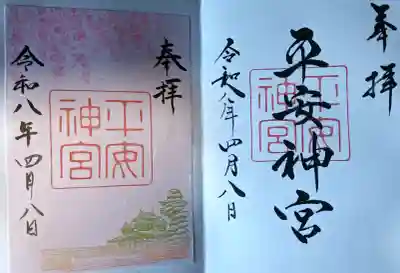 奉拝
平安
神宮
令和八年四月八日
奉拝
平安神宮
平安
神宮
令和八年四月八日